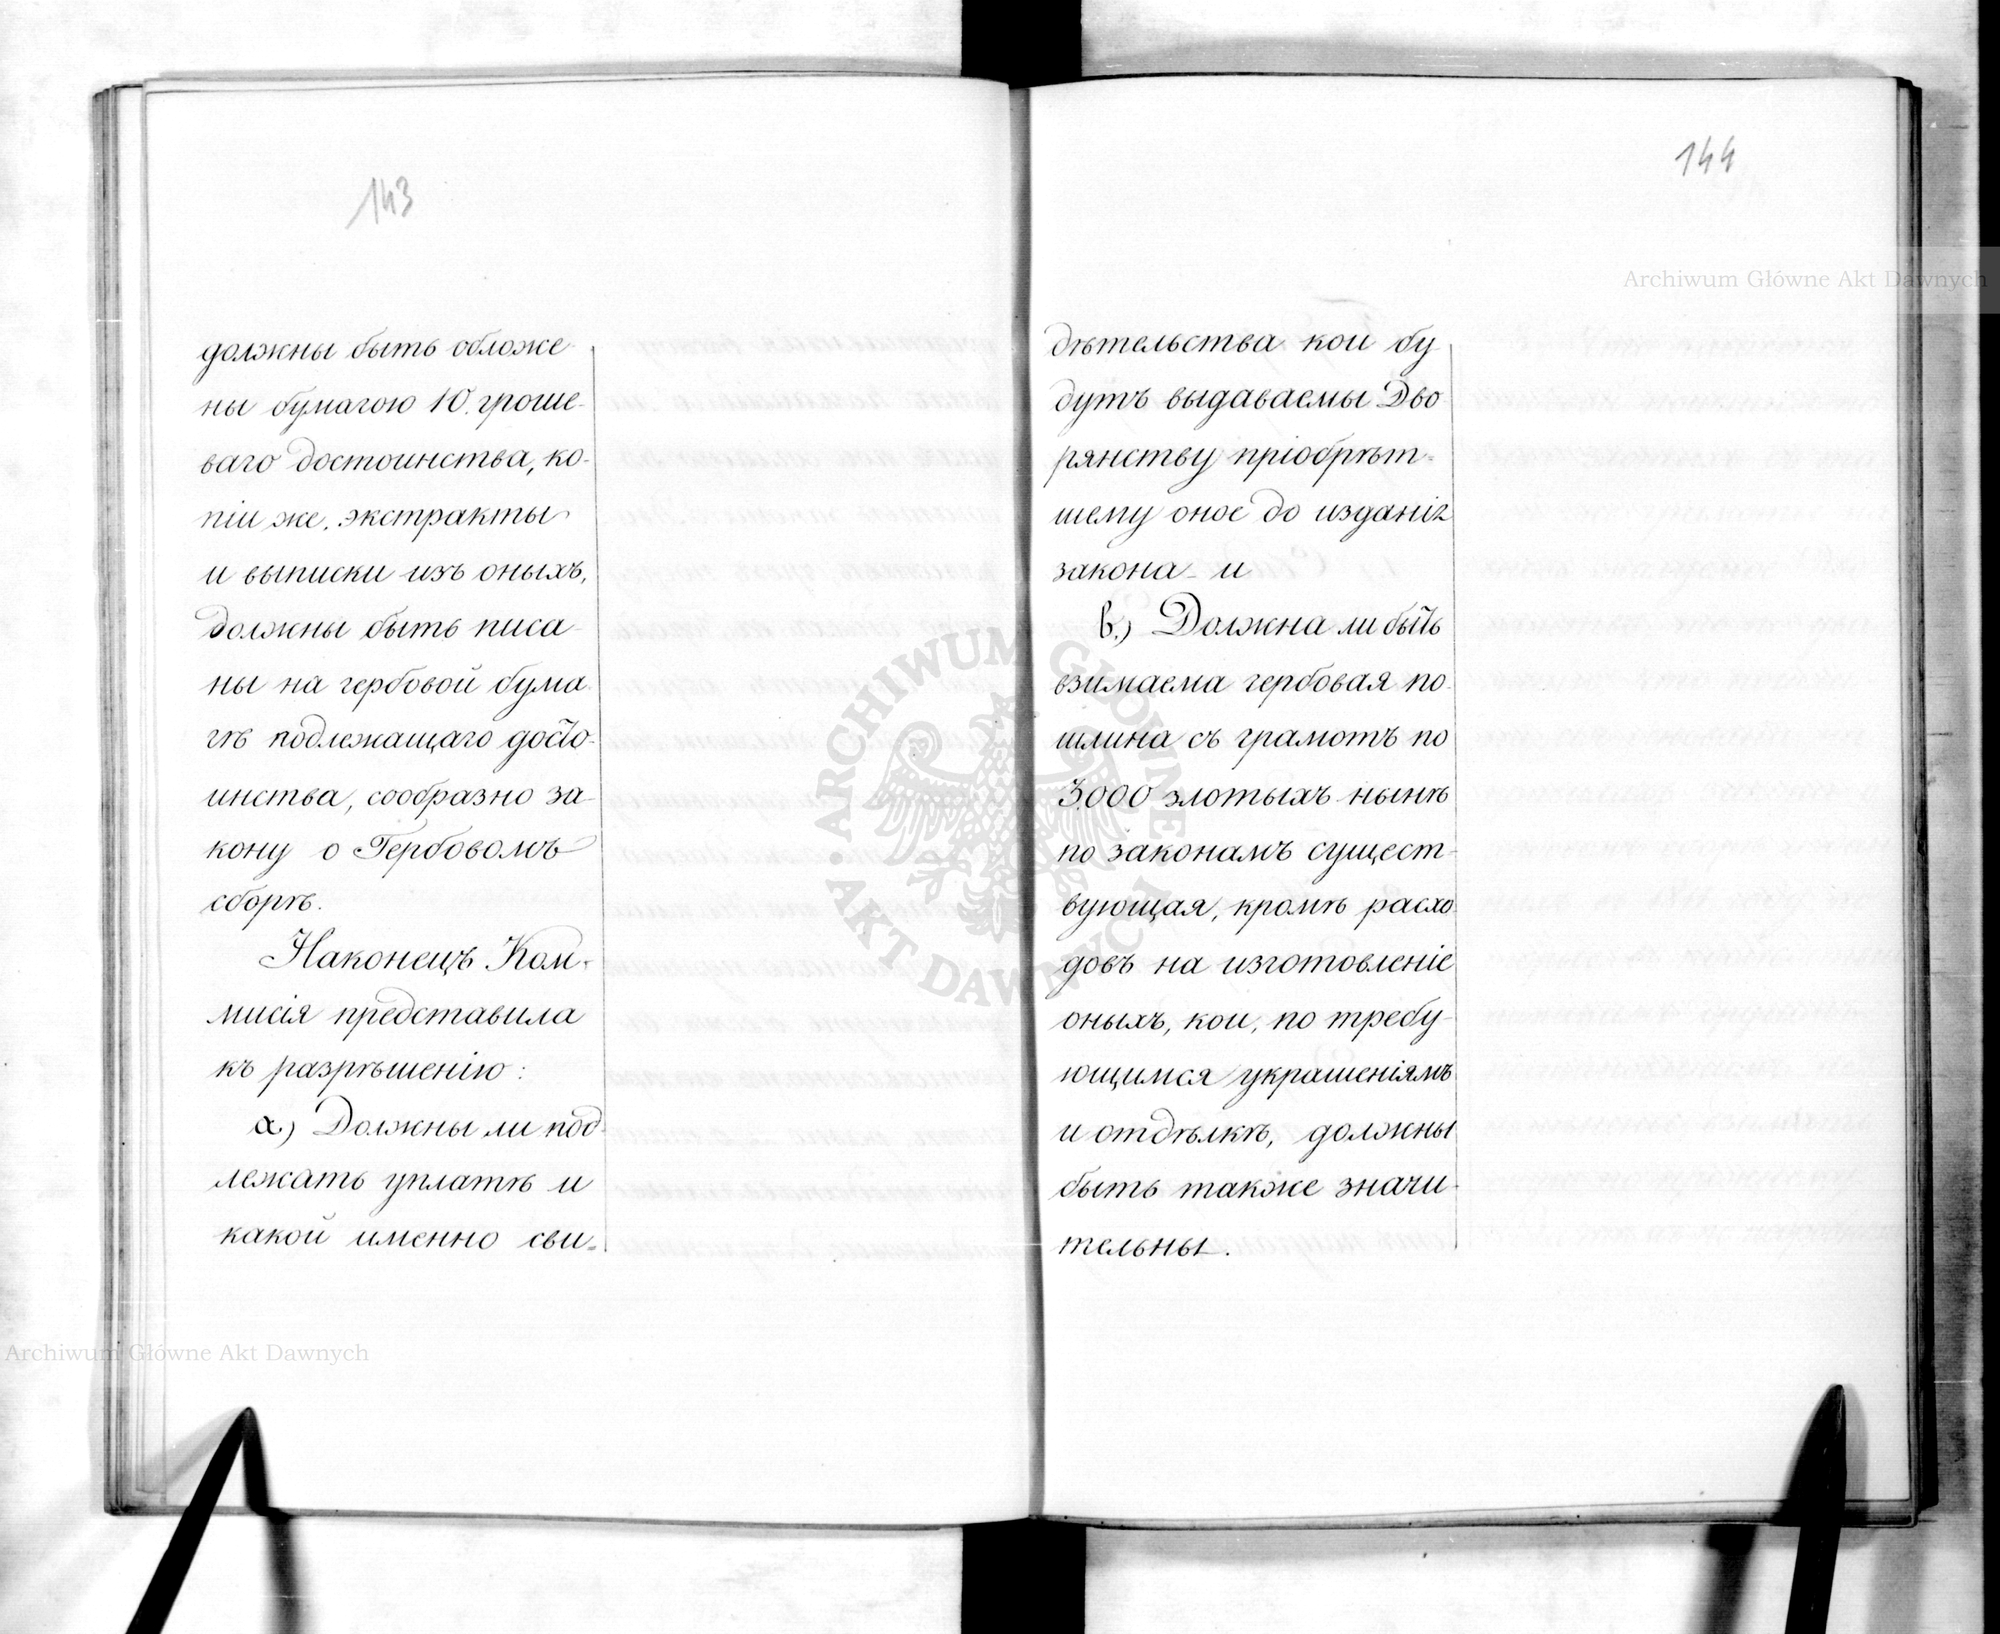 143
должны быть обложе
ны бумагою 10. гроше-
ваго достоинства, ко-
піи же, экстракты
и выписки изъ оныхъ,
должны быть писа-
ны на гербовой бума-
гѣ подлежащаго досто-
инства, сообразно за-
кону о Гербовомъ
сборѣ.
Наконецъ Ком-
мисія представила
къ разрѣшенію:
а) Должны ли под-
лежать уплатѣ и
какой именно сви-
144
дѣтельства кои бу
дутъ выдаваемы Дво-
рянству пріобрѣт-
шему оное до изданія
закона - и
b.) Должна ли быть
взимаема гербовая по-
шлина съ грамотъ по
3.000 злотыхъ нынѣ
по законамъ сущест-
вующая, кромѣ расхо-
довъ на изготовленіе
оныхъ, кои, по требу-
ющимся украшеніямъ
и отдѣлкѣ, должны
быть также значи-
тельны.
Archiwum Główne Akt Dawnych
ARCHIWUM GŁÓWNE
AKT DAWNYCH
Archiwum Główne Akt Dawnych